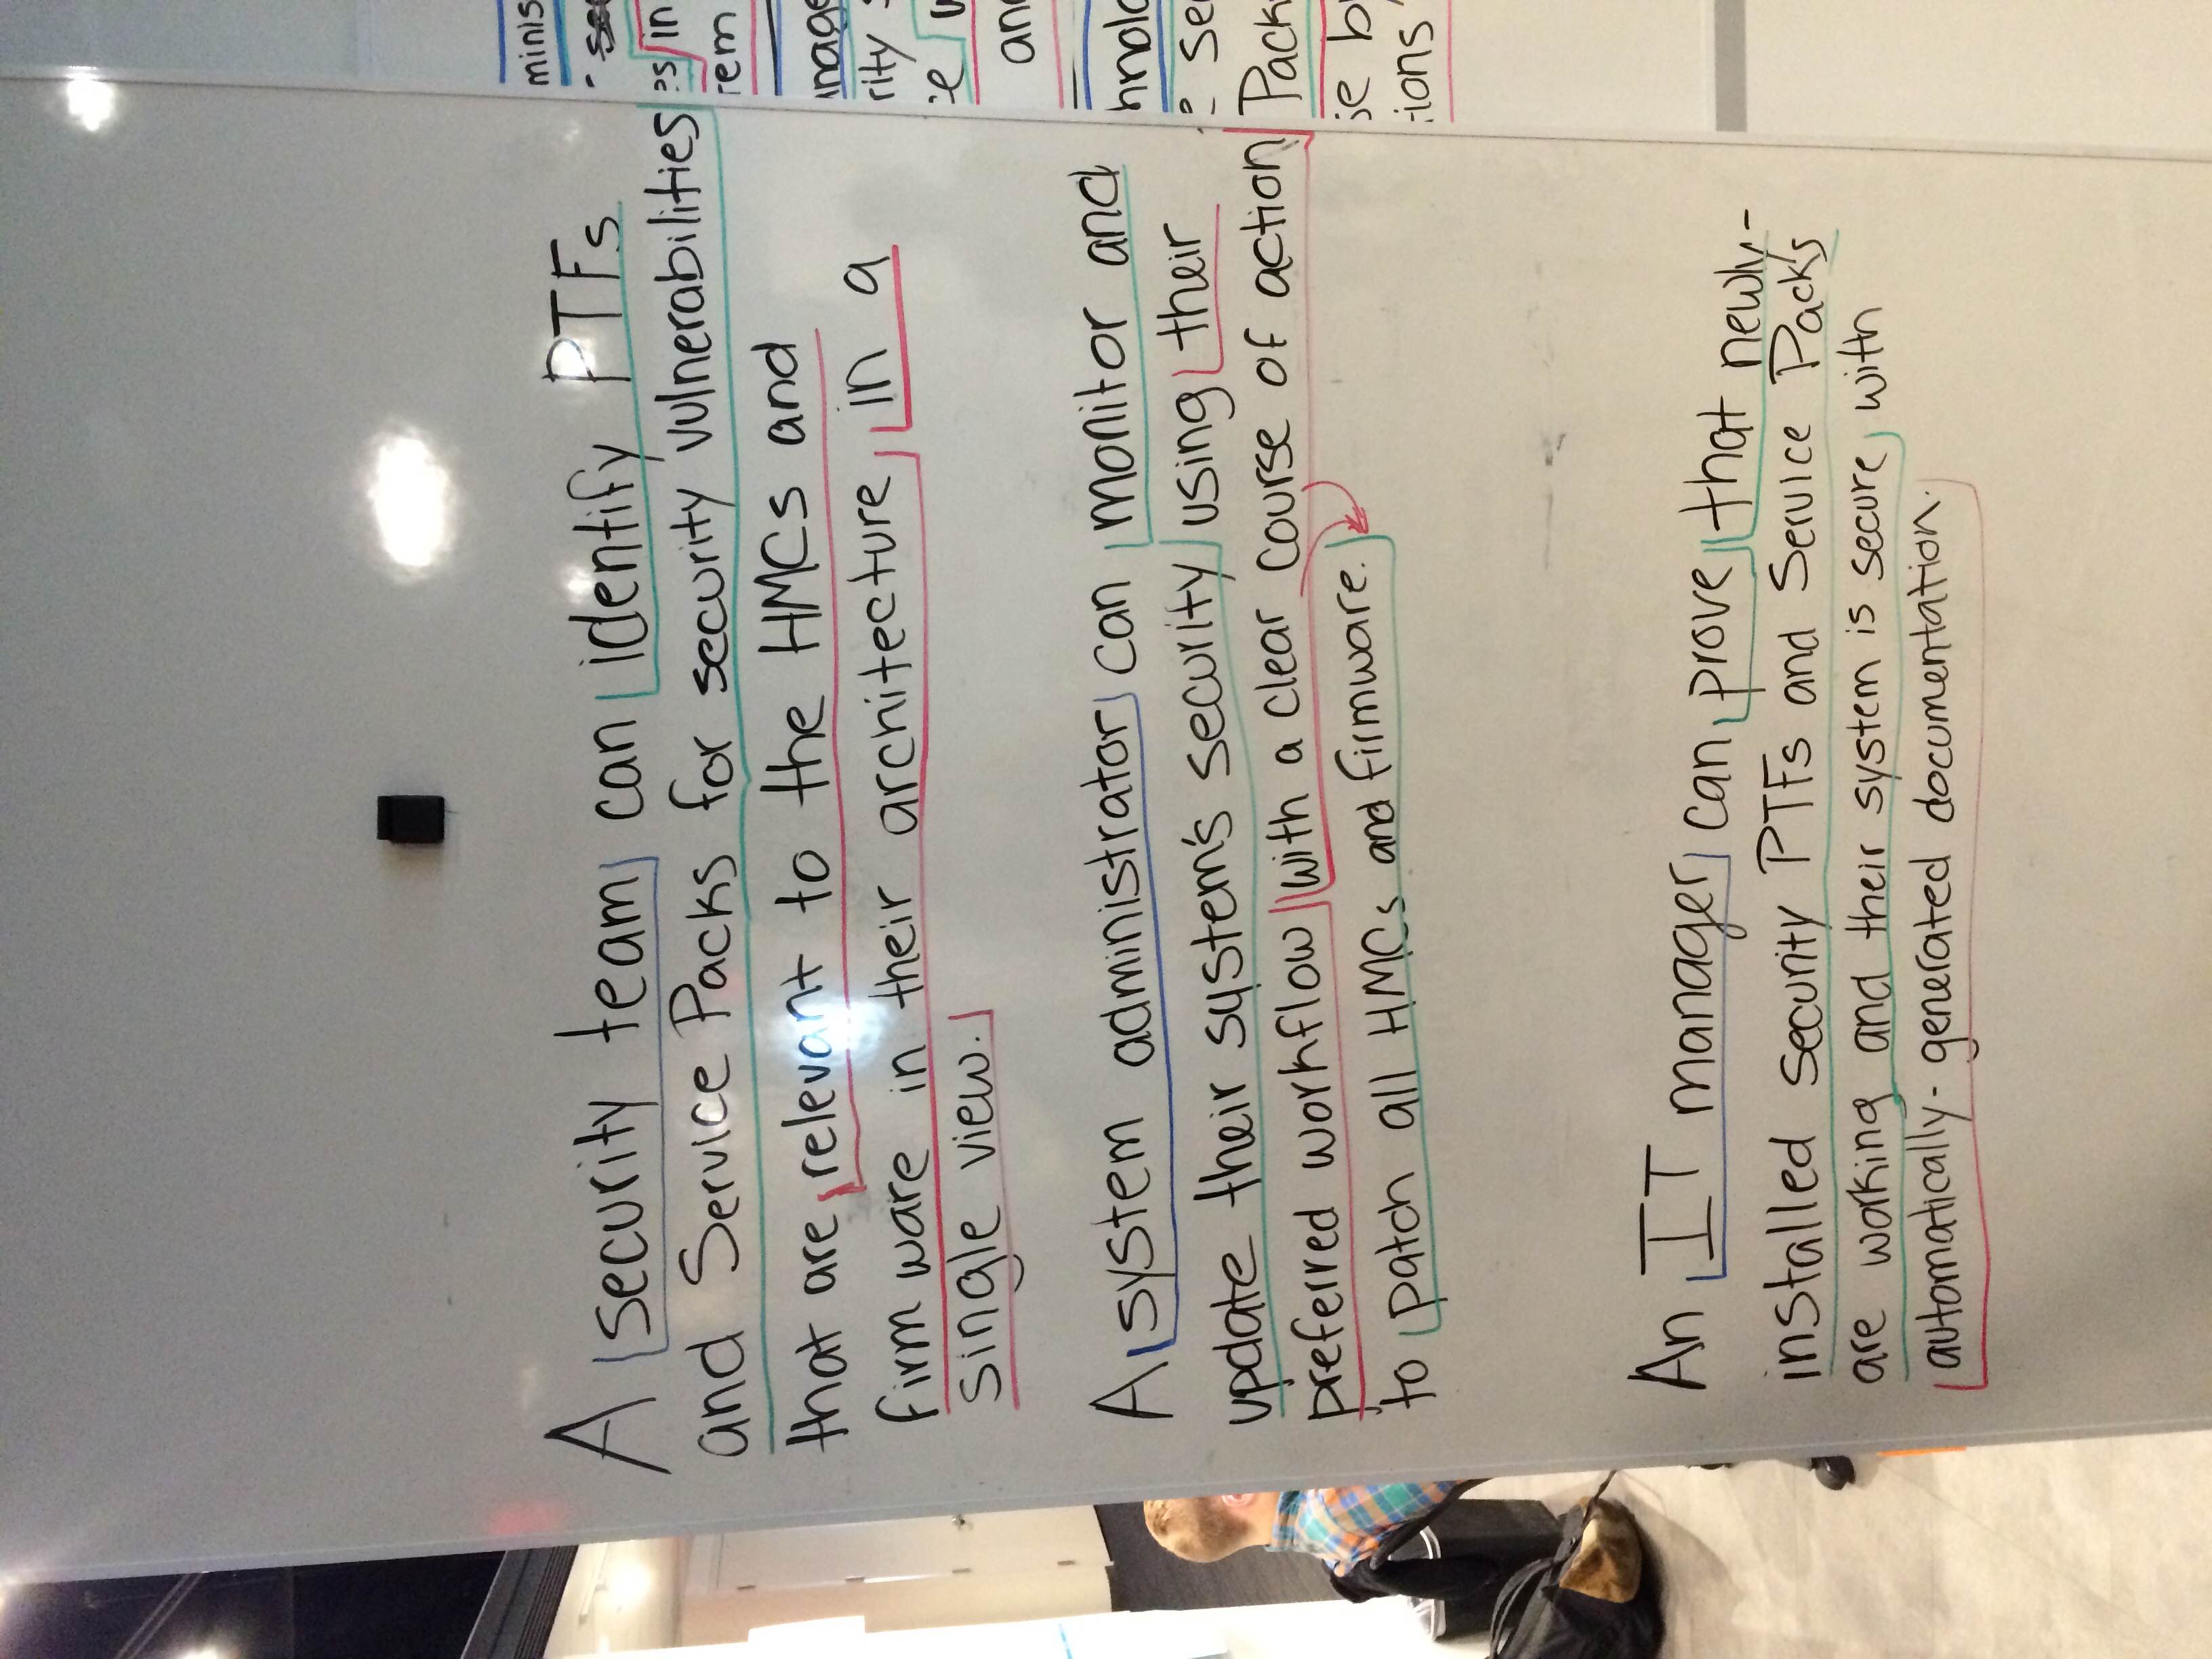 A security team can identify PTFs
and Service Packs for security vulnerabilities
that are relevant to the HMCs and
firmware in their architecture in a
single view.
A system administrator can monitor and
update their system's security using their
preferred workflow with a clear course of action
to patch all HMCs and firmware.
An IT manager can prove that newly-
installed security PTFs and Service Packs
are working and their system is secure with
automatically-generated documentation.
minis
in
rem
rity
and
Pack